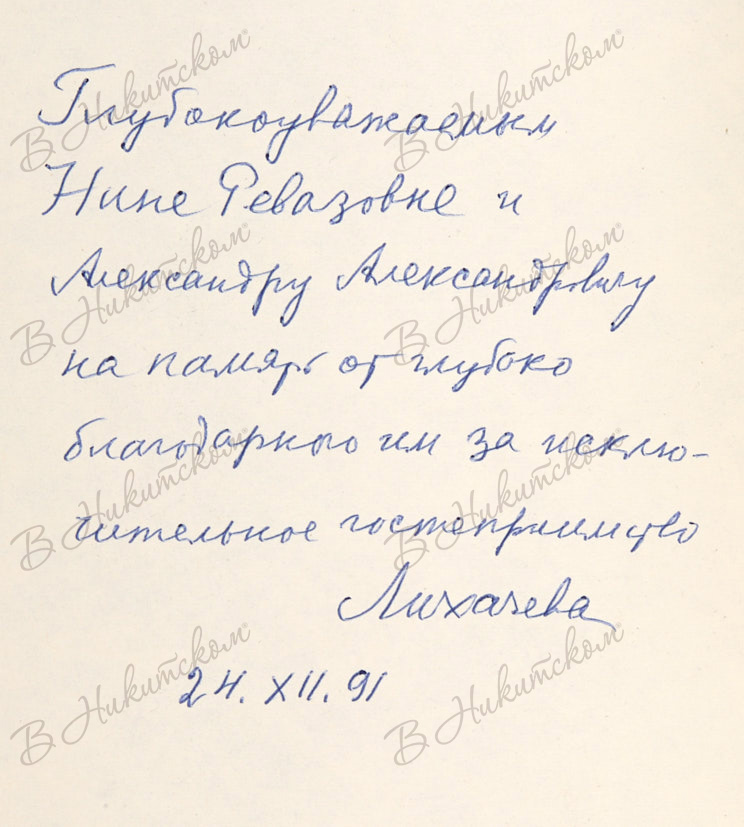 Глубокоуважаемым
Нине Ревазовне и
Александру Александровичу
на память от глубоко
благодарного им за исклю-
чительное гостеприимство
Лихачева
24. XII. 91
В Никитском
В Никитском
В Никитском
В Никитском
В Никитском
В Никитском
В Никитском
В Никитском